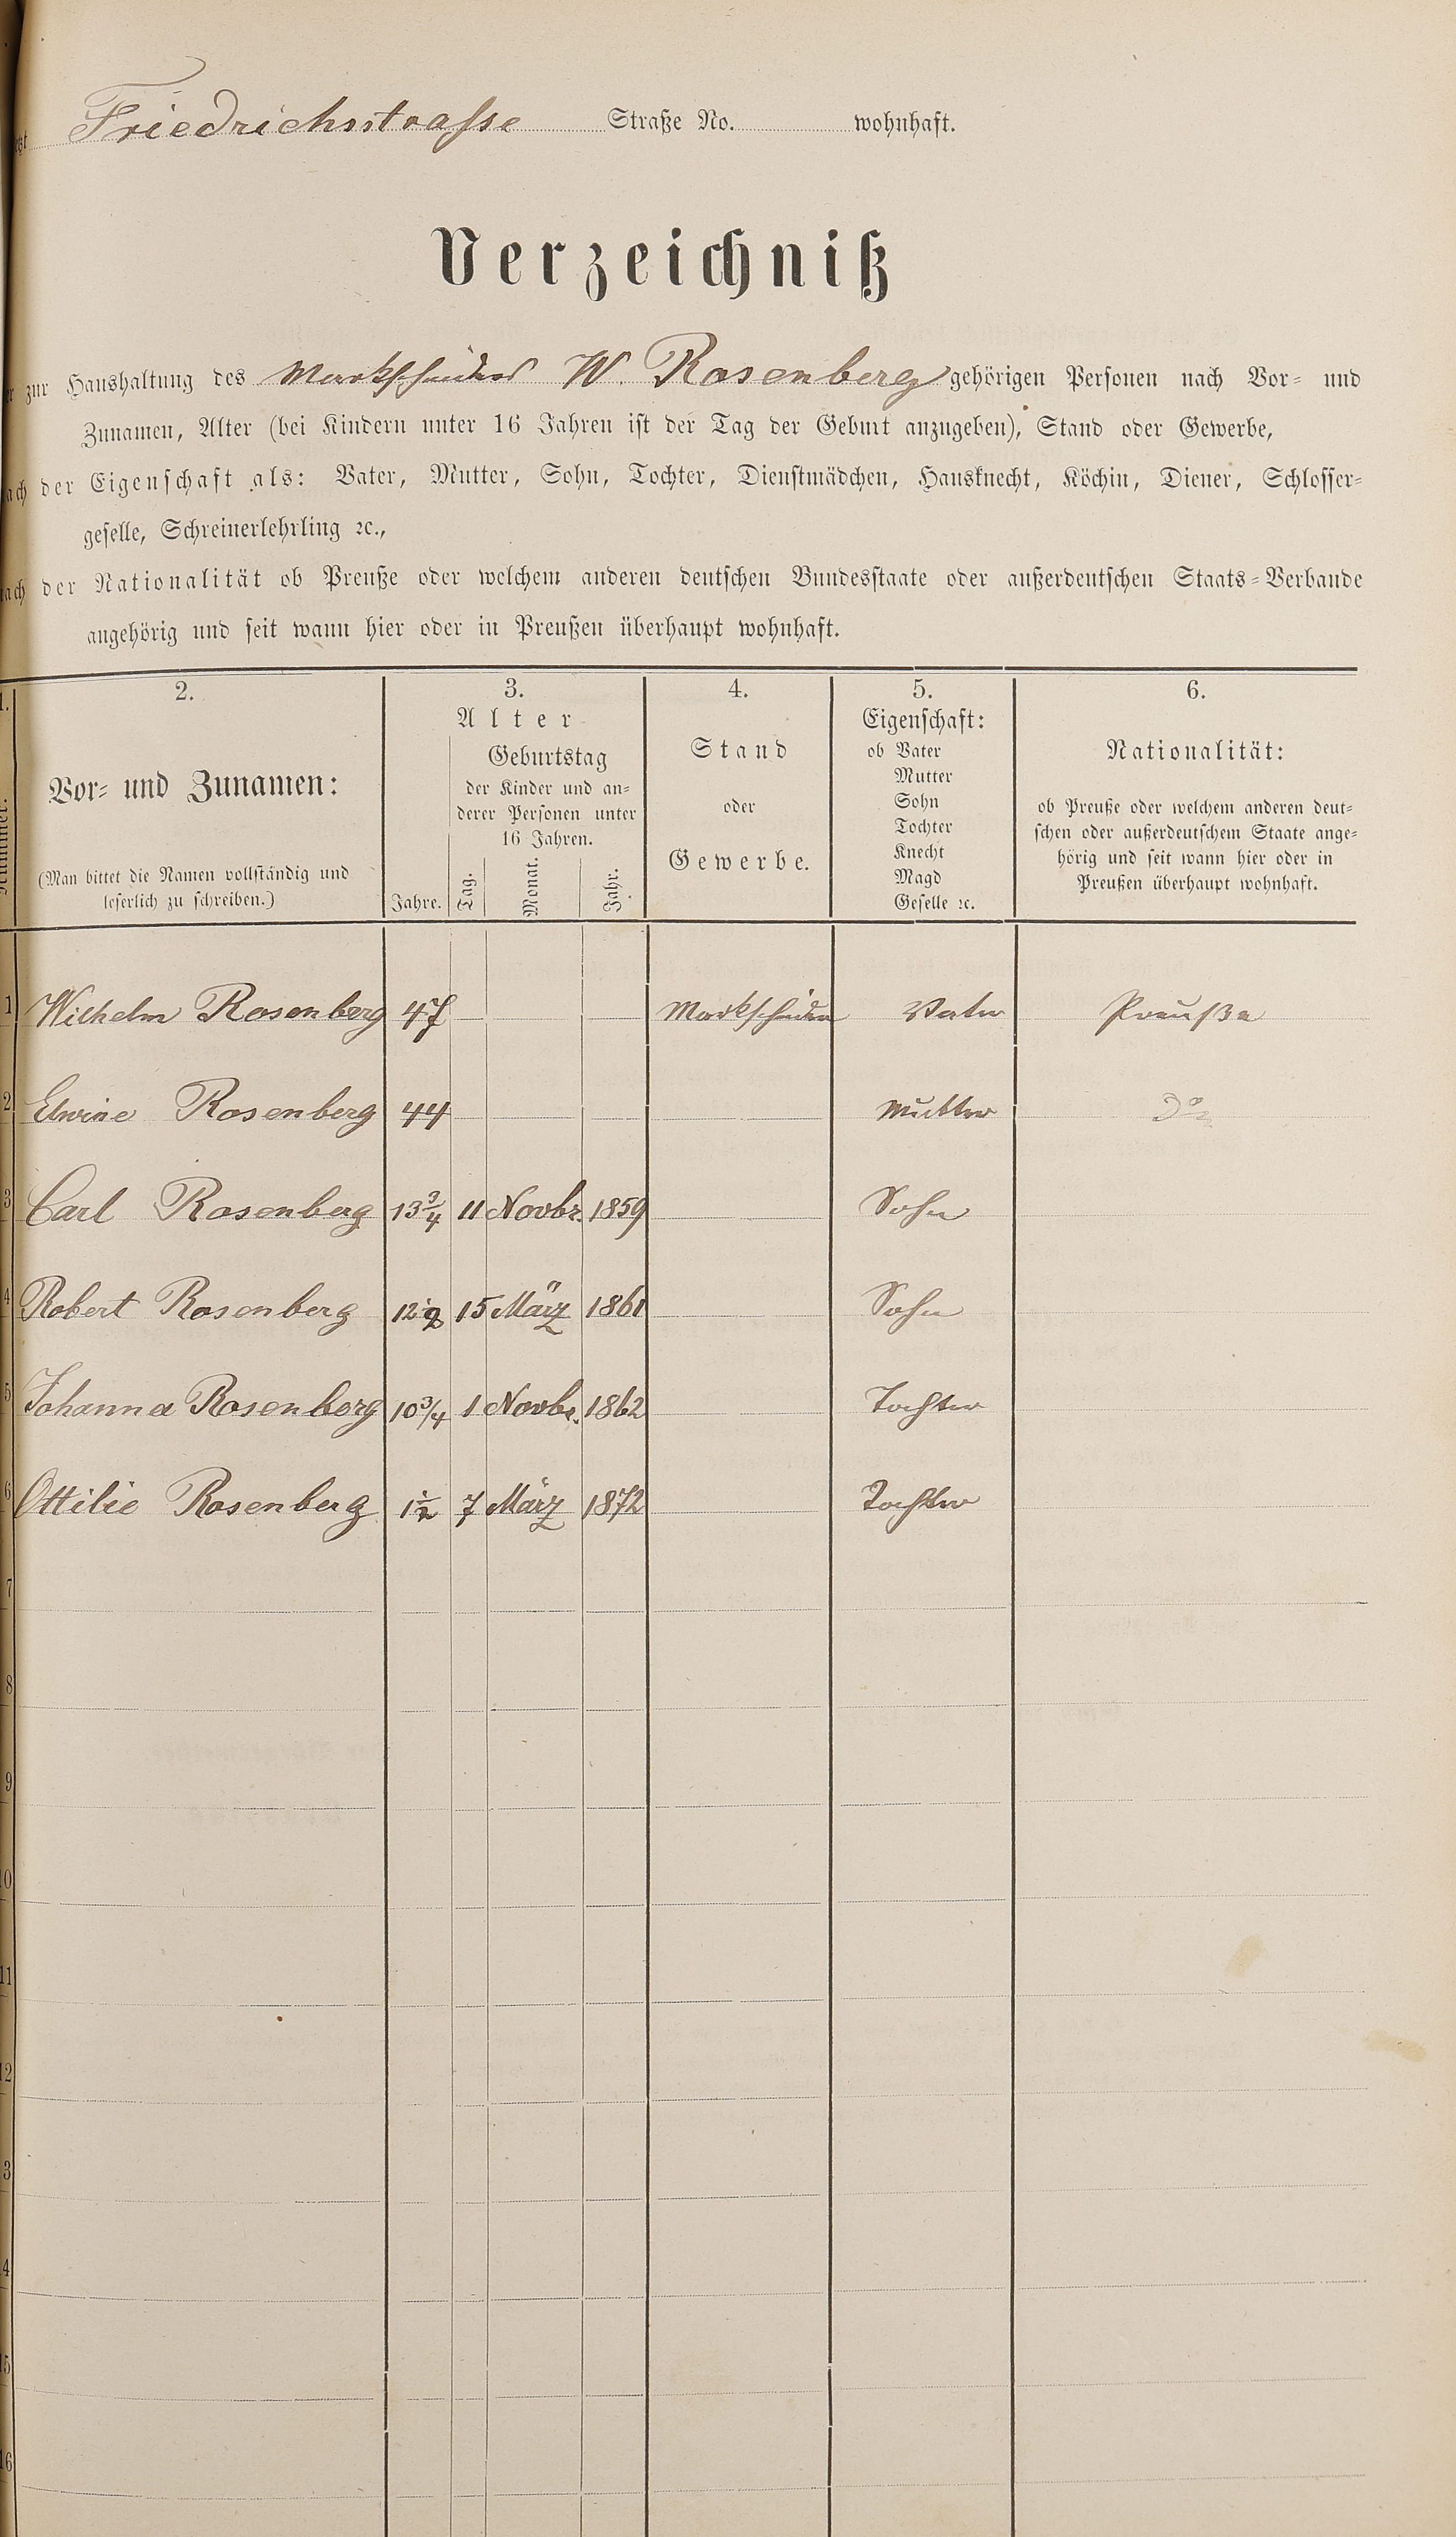 Friedrichsstrasse Straße No. wohnhaft.
Verzeichniß
zur Haushaltung des Markscheiders W. Rosenberg gehörigen Personen nach Vor- und
Zunamen, Alter (bei Kindern unter 16 Jahren ist der Tag der Geburt anzugeben), Stand oder Gewerbe,
der Eigenschaft als: Vater, Mutter, Sohn, Tochter, Dienstmädchen, Hausknecht, Köchin, Diener, Schlosser-
geselle, Schreinerlehrling ꝛc.,
der Nationalität ob Preuße oder welchem anderen deutschen Bundesstaate oder außerdeutschen Staats-Verbande
angehörig und seit wann hier oder in Preußen überhaupt wohnhaft.
1. 2. 3. 4. 5. 6.
Nummer.
Vor- und Zunamen:
(Man bittet die Namen vollständig und
leserlich zu schreiben.)
Alter
Jahre.
Geburtstag
der Kinder und an-
derer Personen unter
16 Jahren.
Tag. Monat. Jahr.
Stand
oder
Gewerbe.
Eigenschaft:
ob Vater
Mutter
Sohn
Tochter
Knecht
Magd
Geselle ꝛc.
Nationalität:
ob Preuße oder welchem anderen deut-
schen oder außerdeutschem Staate ange-
hörig und seit wann hier oder in
Preußen überhaupt wohnhaft.
1 Wilhelm Rosenberg 47 Markscheider Vater Preuße
2 Elwine Rosenberg 44 Mutter Do
3 Carl Rosenberg 13 3/4 11 Novbr. 1859 Sohn
4 Robert Rosenberg 12 1/2 15 März 1861 Sohn
5 Johanna Rosenberg 10 3/4 1 Novbr. 1862 Tochter
6 Ottilie Rosenberg 1 1/2 7 März 1872 Tochter
7
8
9
10
11
12
3
4
15
16